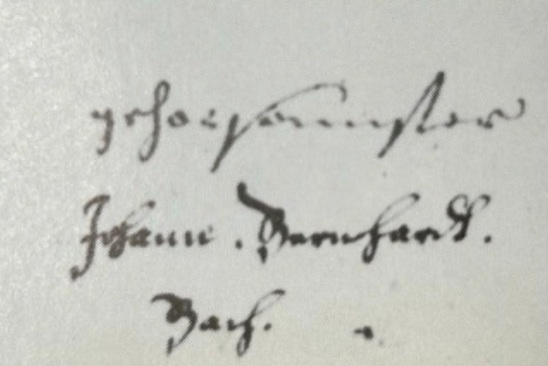 gehorsamster
Johann. Bernhardt.
Bach.